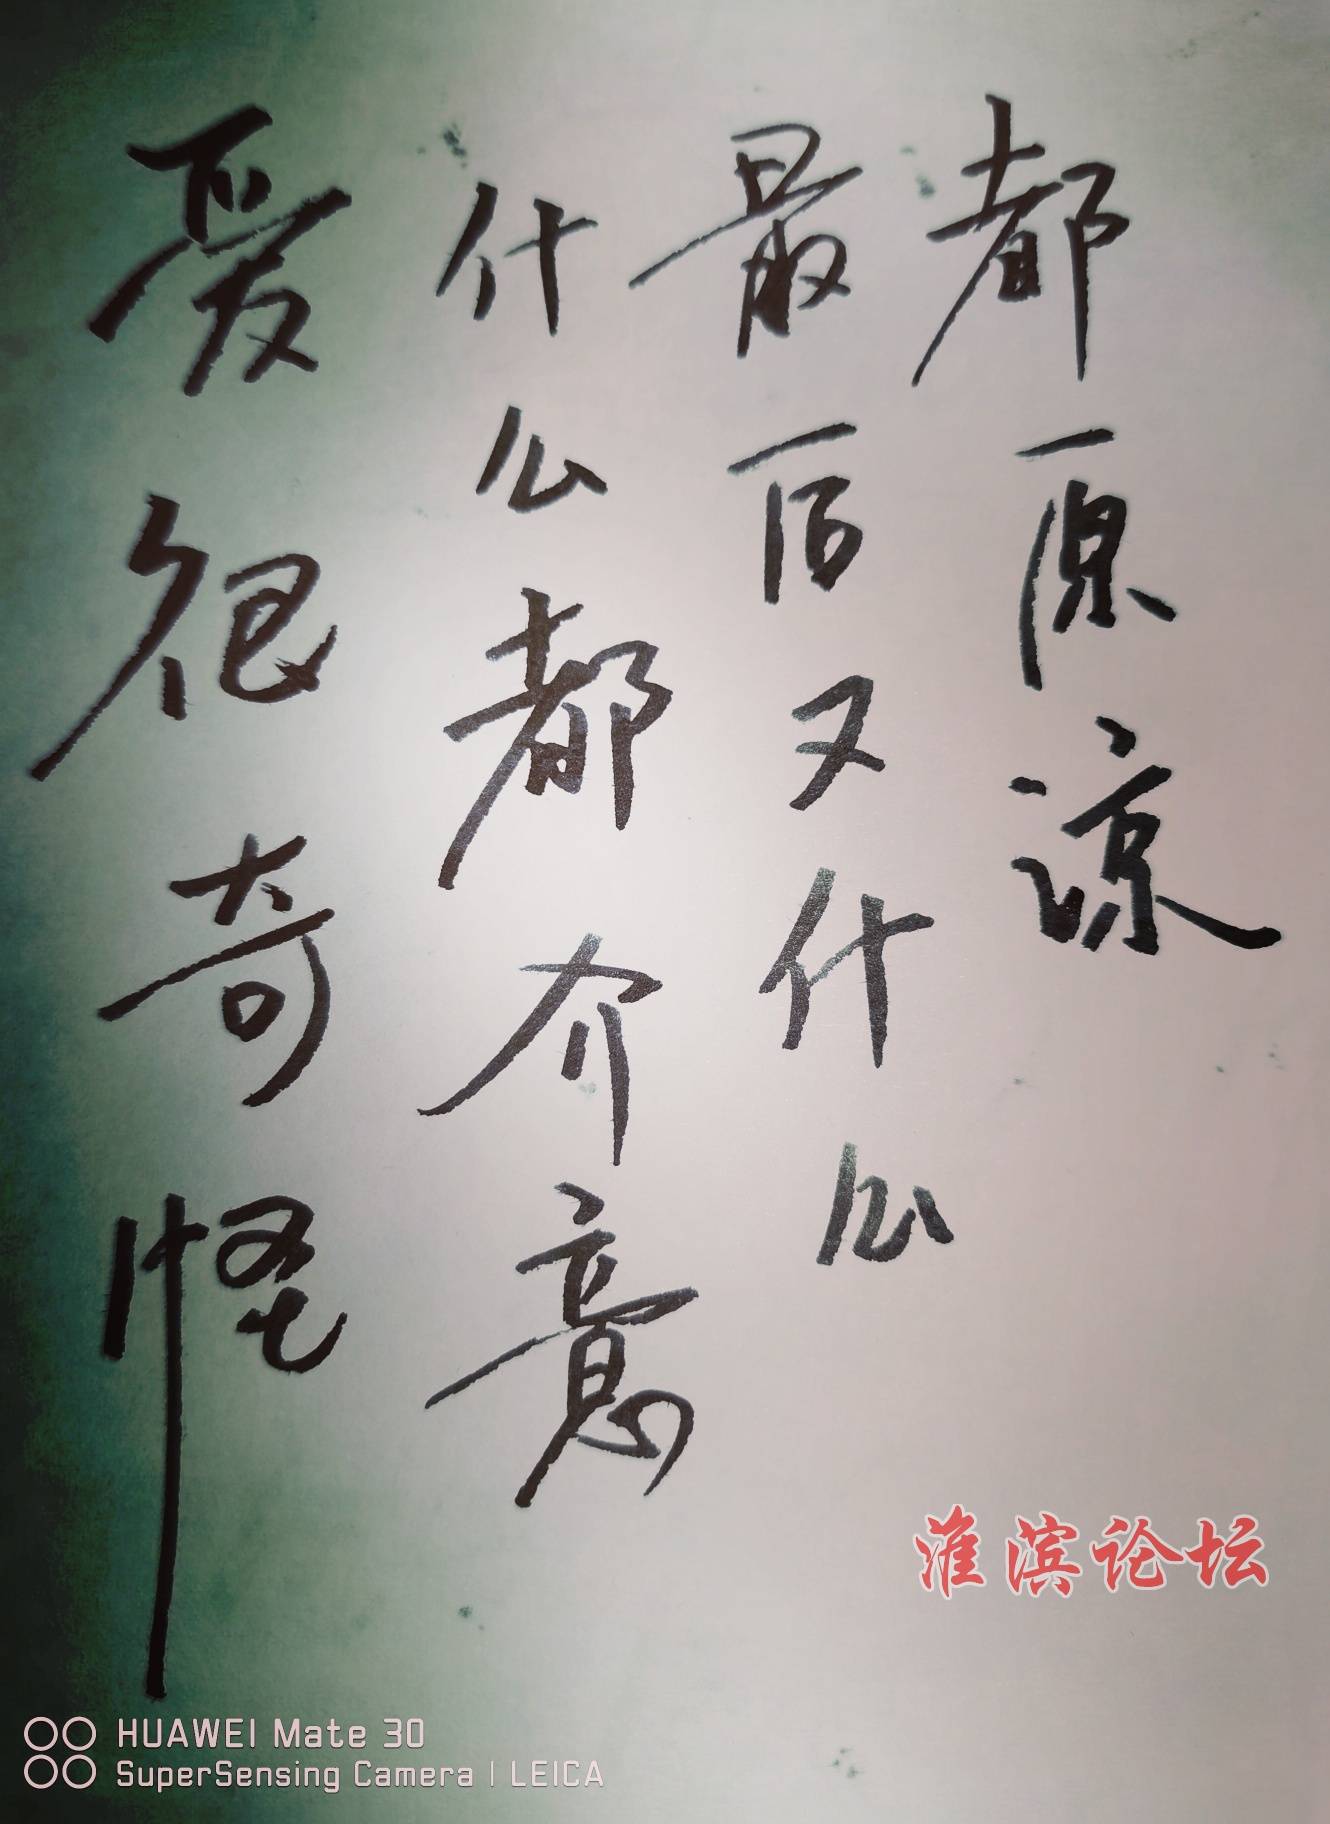 爱很奇怪
什么都介意
最后又什么
都原谅
淮滨论坛
HUAWEI Mate 30
SuperSensing Camera | LEICA